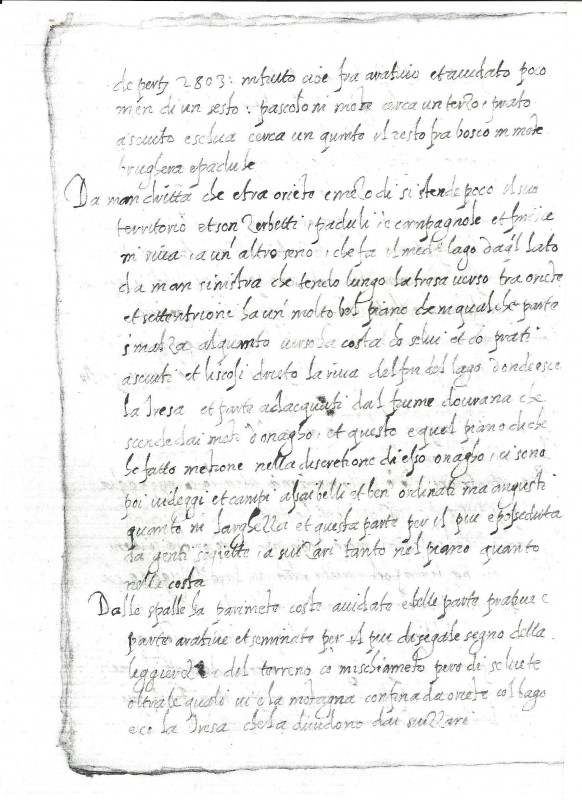 de pert 2803: in tutto cioè fra aratiuio et auidato poco
men di un sesto. pascolo ni mõte cerca un terzo, prato
asciuto esclua cerca un quinto il resto fra bosco in mõte
brughera e padule
Da man dritta che e tra oriẽto e mezo di si stende poco il suo
territorio et son Zerbetti, paduli, e campagnole et finisce
in riua a un' altro seno, che fa il med.o lago daql lato
da man sinistra che tendo lungo la tresa uerso tra oriẽte
et settentrione ha un' molto bel piano che in qualche parte
s' inalza alquinto uerso la costa cõ selui et cõ prati
asciuti et liscoli drieto la riua del fin del lago donde esce
la Tresa et parte adacquati dal fiume dourana che
scende dai mõti d'onagho, et questo e quel piano di che
ho fatto mẽtione nella discretione di esso onagho, ui sono
poi uideggi et campi assai belli et ben ordinati ma angusti
quanto in larghezza et questa parte per il piu e posseduta
da genti sogiette a suizzari tanto nel piano quanto
nella costa
Dalle spalle ha parimẽte coste auidate e belle parte pratiue e
parte aratiue et seminate per il piu di segale segno della
leggierezza del terreno cõ mischiamẽto pero di seluete
oltra le quali ui e la mõtagna confina da oriẽte col lago
e cõ la Tresa che la diuidono dai suizzari